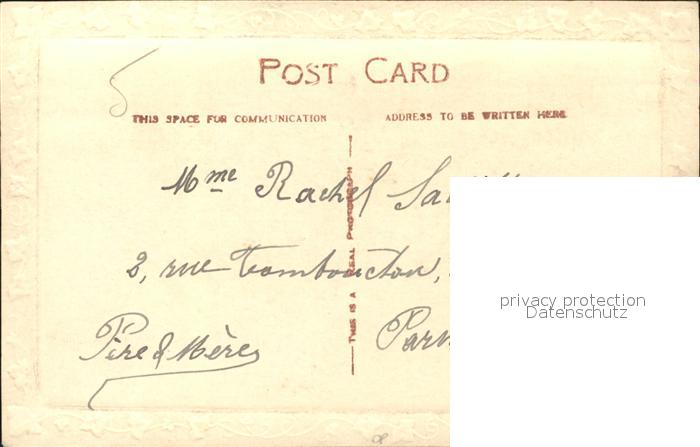 POST CARD
THIS SPACE FOR COMMUNICATION
ADDRESS TO BE WRITTEN HERE
THIS IS A REAL PHOTOGRAPH
Mme Rachel
2, rue Tombouctou,
Père & Mère
privacy protection
Datenschutz